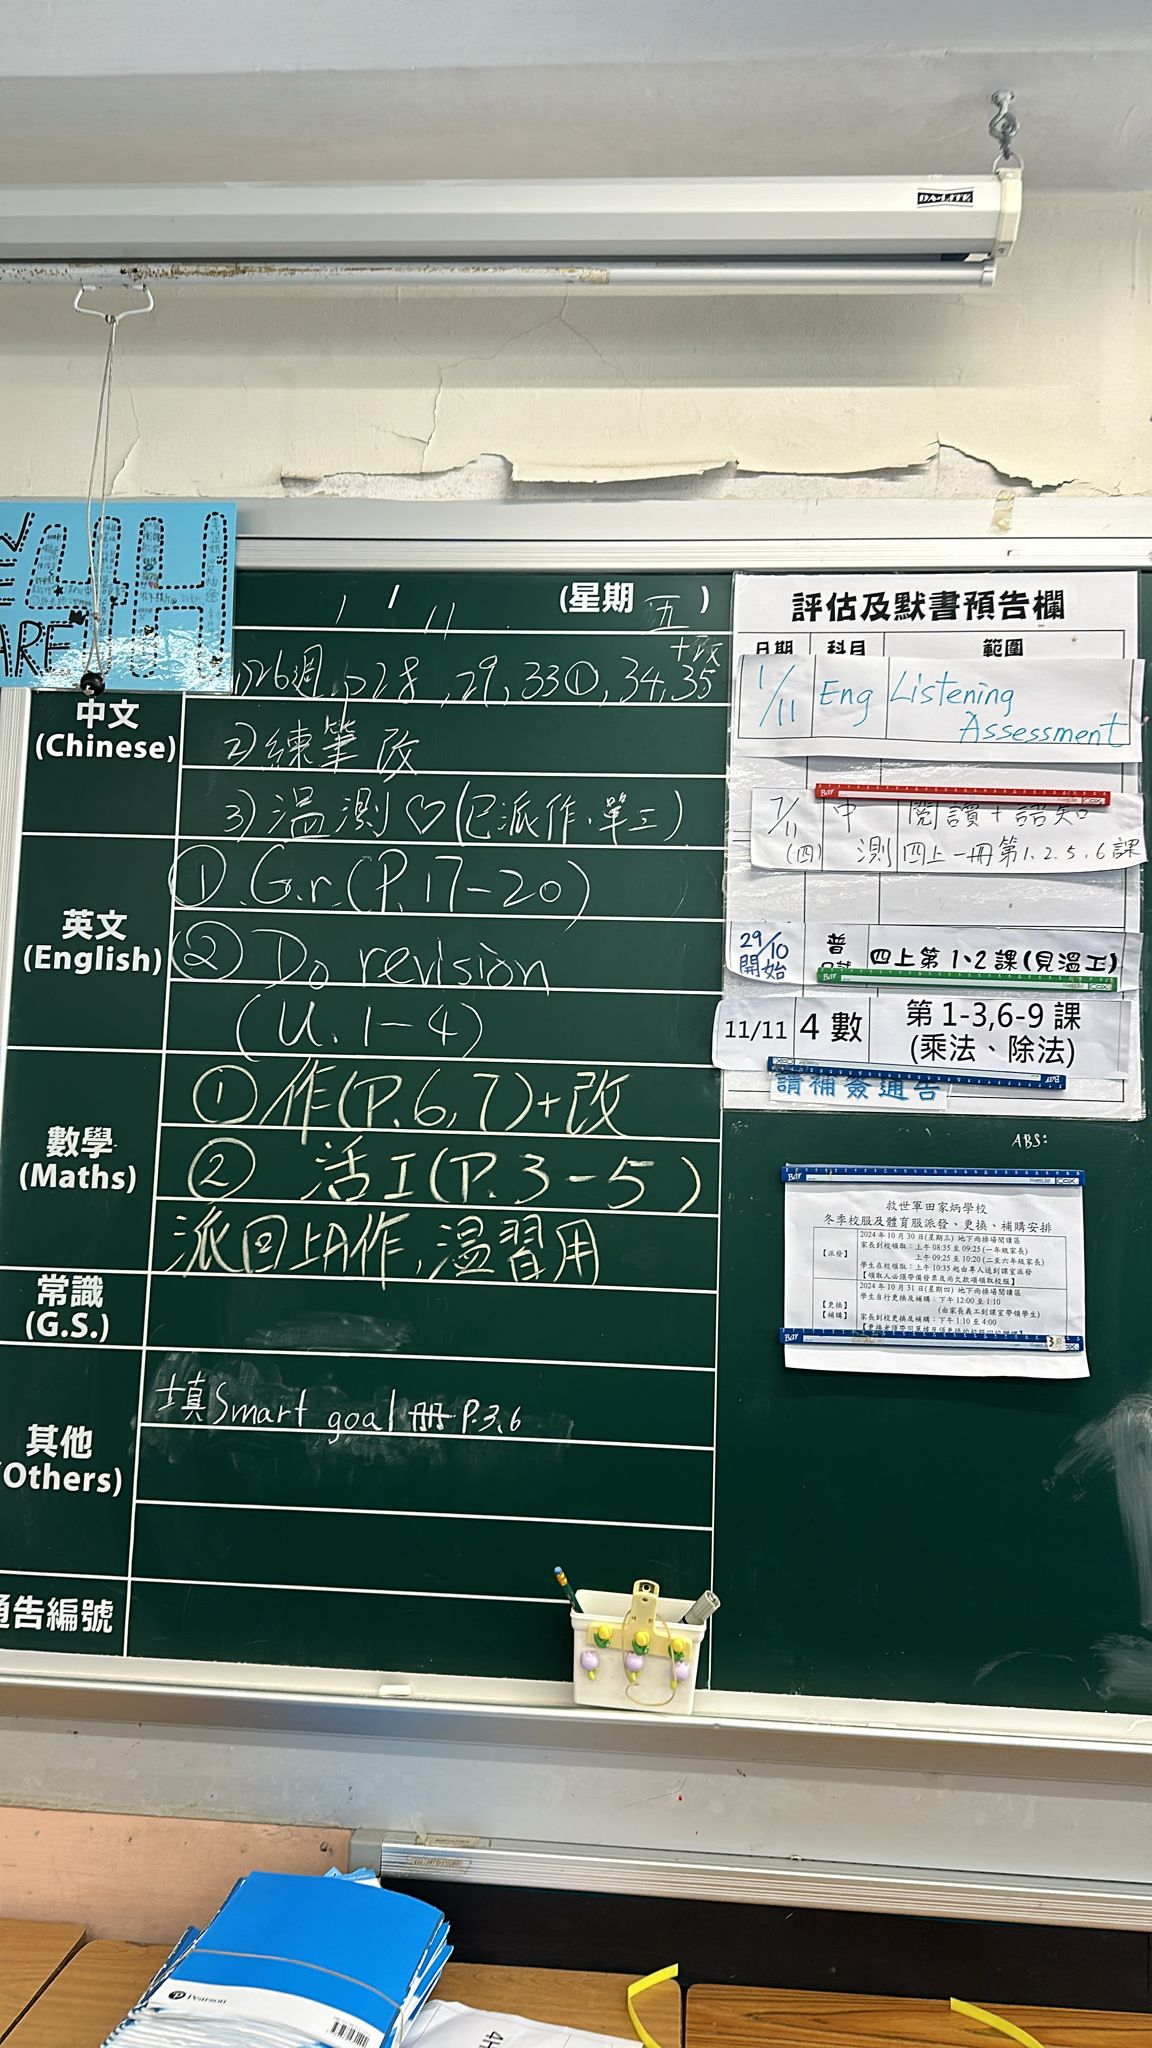 DA-LITE
WE
4H
ARE
1 / 11 (星期 五 )
+改
1) 26週, p28, 29, 33①, 34, 35
中文
(Chinese)
2) 練筆改
3) 溫測♡(已派作、單三)
英文
(English)
① G.r. (P.17-20)
② Do revision
(U. 1-4)
數學
(Maths)
① 作(P.6,7)+改
② 活工(P.3-5)
派回上A作, 溫習用
常識
(G.S.)
其他
(Others)
填Smart goal冊 P.3,6
通告編號
評估及默書預告欄
日期 科目 範圍
1/11 Eng Listening
Assessment
7/11 中 閱讀+語知
(四) 測 四上一冊第1、2、5、6課
29/10 普 四上第1、2課(見溫工)
開始
11/11 4數 第1-3,6-9課
(乘法、除法)
請補簽通告
ABS:
救世軍田家炳學校
冬季校服及體育服派發、更換、補購安排
【派發】
2024年10月30日(星期三) 地下雨操場閱讀區
家長到校領取:上午08:35至09:25(一年級家長)
上午09:25至10:20(二至六年級家長)
學生在校領取:上午10:35起由專人送到課室派發
【領取人必須帶備發票及尚欠款項領取校服】
【更換】
【補購】
2024年10月31日(星期四) 地下雨操場閱讀區
學生自行更換及補購:下午12:00至1:10
(由家長義工到課室帶領學生)
家長到校更換及補購:下午1:10至4:00
Pearson